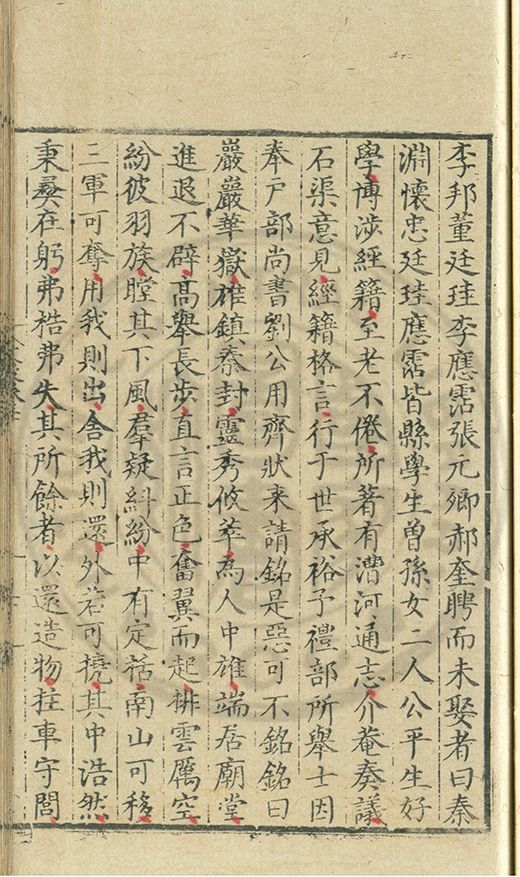 李邦董廷珪李應霑張元卿郝奎聘而未娶者曰秦
淵懷忠廷珪應霑皆縣學生曽孫女二人公平生好
學博涉經籍至老不倦所著有漕河通志介菴奏議
石渠意見經籍格言行于世承裕予禮部所舉士因
奉户部尚書劉公用齊狀来請銘是惡可不銘銘曰
巖巖華嶽雄鎮秦封靈秀攸萃為人中雄端居廟堂
進退不辟髙舉長步直言正色奮翼而起排雲厲空
紛彼羽族瞠其下風羣疑糾紛中有定萿南山可移
三軍可奪用我則出舍我則還外若可撓其中浩然
秉彜在躬弗梏弗失其所餘者以還造物拄車守閭